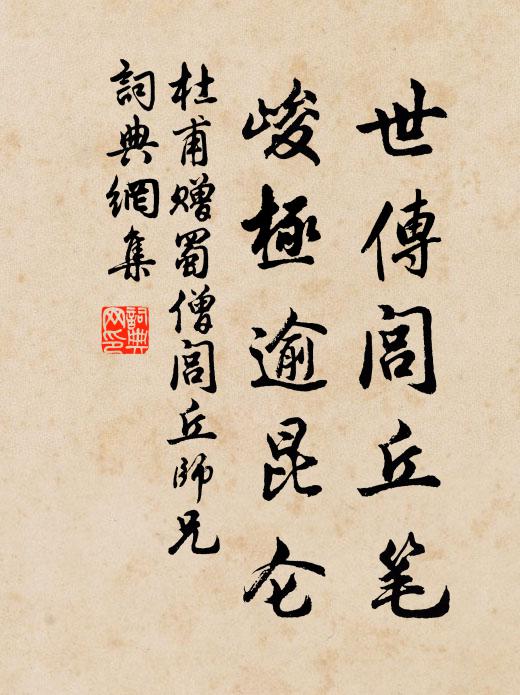 世傳閭丘笔
峻極逾昆仑
杜甫赠蜀僧閭丘師兄
詞典網集
詞典网印